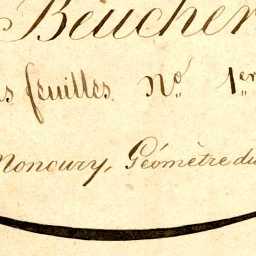 Beucher
s feuilles. No. 1er
Moncury, Géomètre du